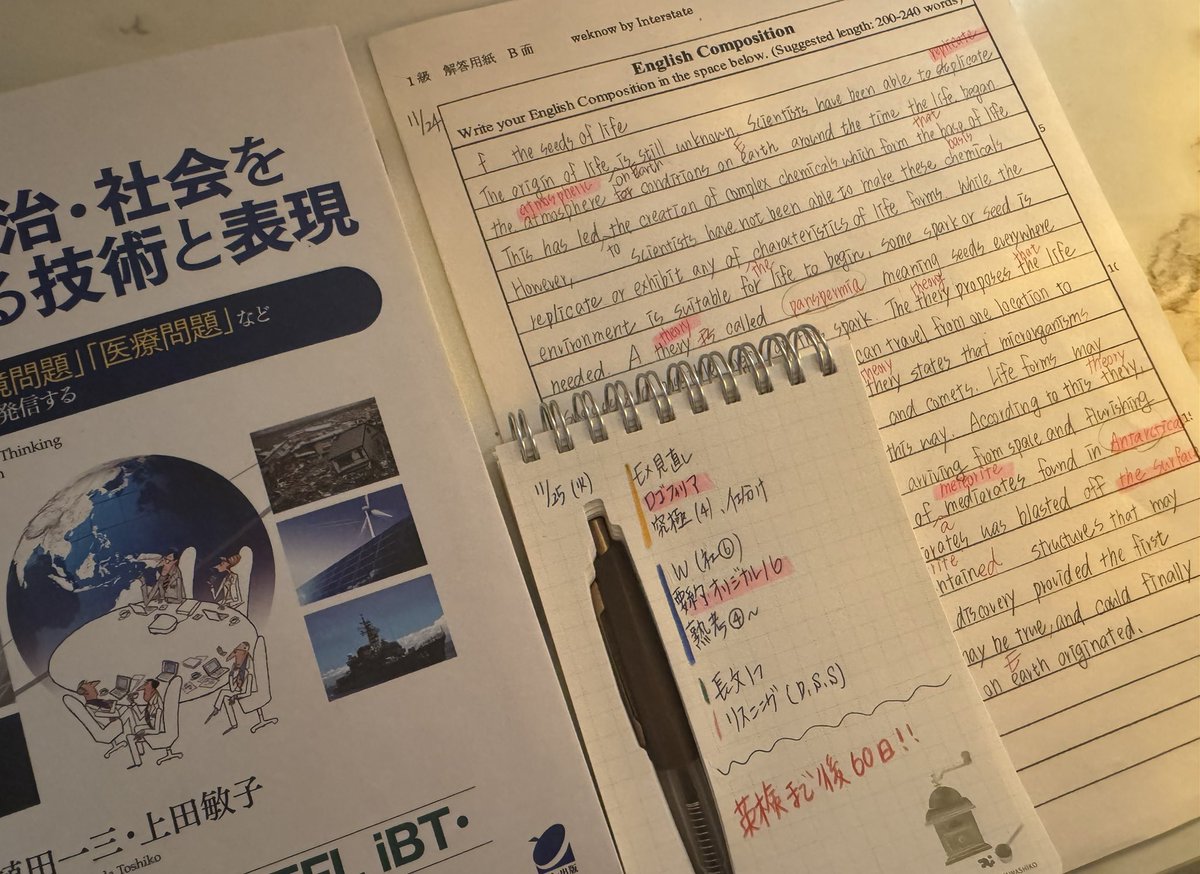 治・社会を
る技術と表現
境問題」「医療問題」など
発信する
Thinking
植田一三・上田敏子
Toshiko
TEFL iBT・
出版
weknow by Interstate
1級 解答用紙 B面
English Composition
Write your English Composition in the space below. (Suggested length: 200-240 words)
11/24
the seeds of life
replicate
The origin of life is still unknown. Scientists have been able to duplicate
atmospheric
on Earth
that
the atmosphere for conditions on earth around the time the life began
E
basis
This has led the creation of complex chemicals which form the base of life
to
However, scientists have not been able to make these chemicals
replicate or exhibit any of characteristics of life forms. While the
the
environment is suitable for life to begin, some spark or seed is
theory
needed. A thery is called panspermia meaning seeds everywhere
theory
that
spark. The thery proposes the life
can travel from one location to
theory
thery states that microorganisms
and comets. Life forms may
theory
this way. According to this thery,
arriving from space and flurishing
meteorite
of mediarates found in Antarctica
was blasted off the surfac
a
rite
ntained structures that may
discovery provided the first
may be true, and could finally
E
on earth originated.
5
11/25 (火)
EX見直し
ロゴフィリア
究極 (4)、仕分け
W (A2⑥)
要約オリジナル16
熟考④~
長文1つ
リスニング (D,S,S)
英検まで後60日!!